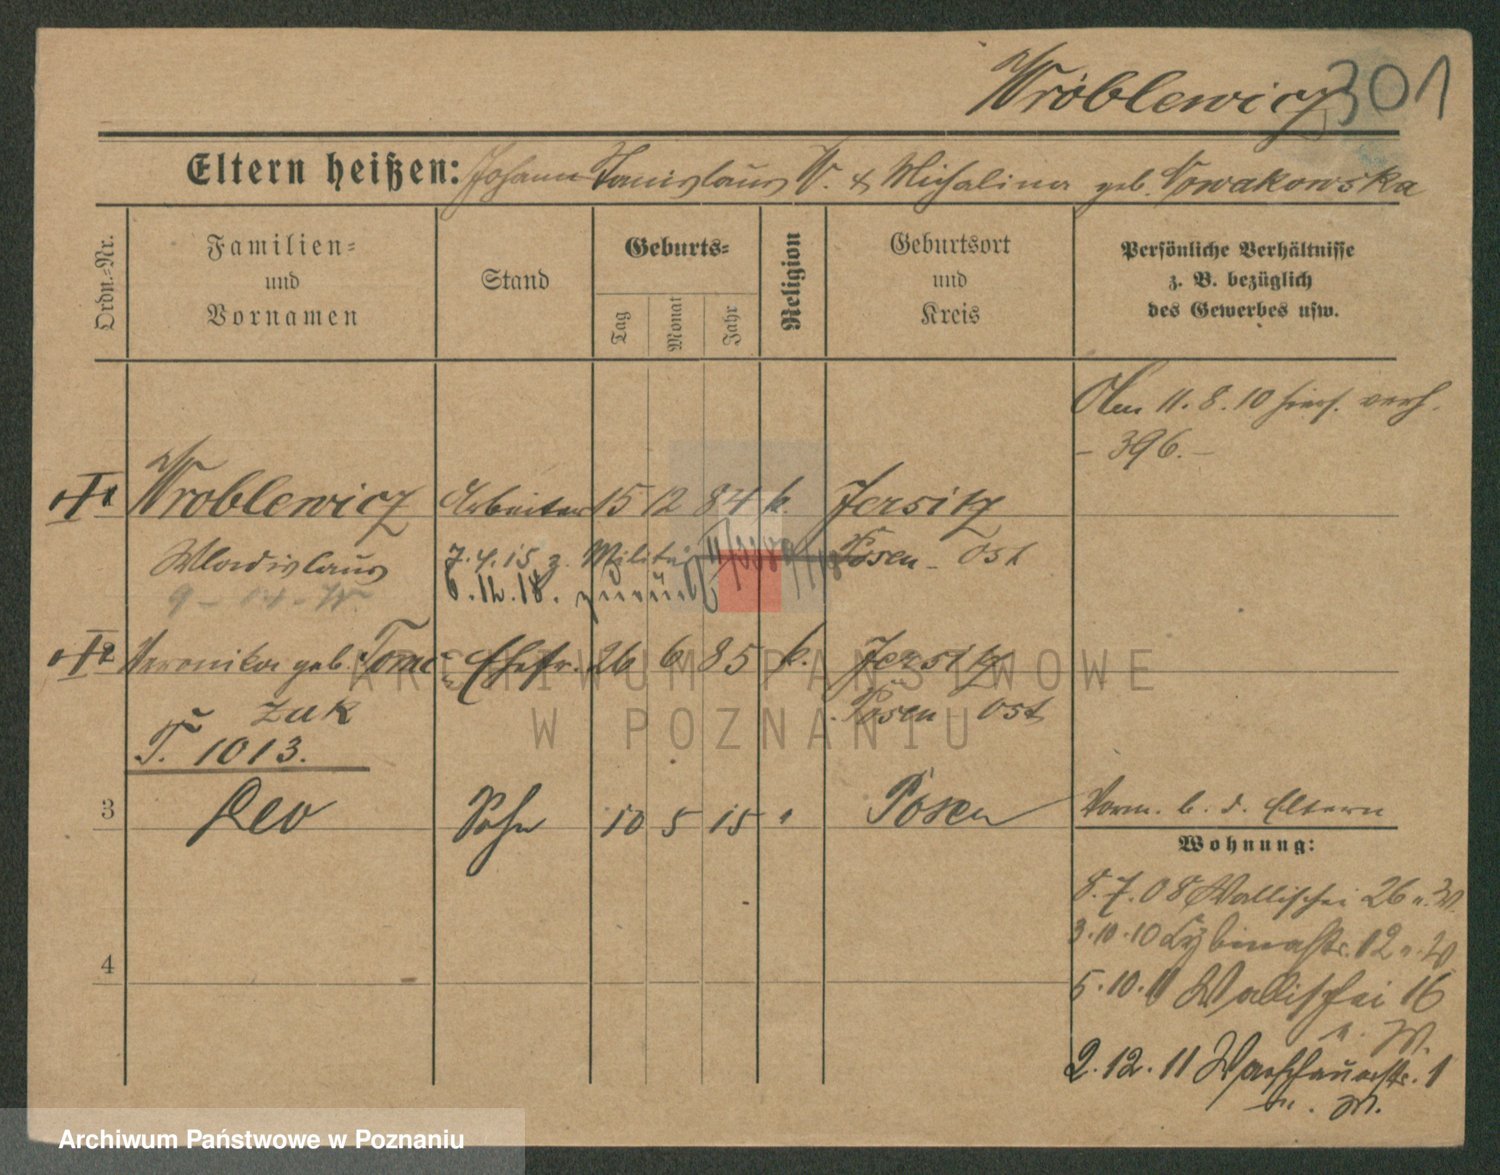 Wróblewicz 301
Eltern heißen: Johann Stanislaus W. & Michalina geb. Nowakowska
Ordn.-Nr.
Familien-
und
Vornamen
Stand
Geburts-
Tag
Monat
Jahr
Religion
Geburtsort
und
Kreis
Persönliche Verhältnisse
z. B. bezüglich
des Gewerbes usw.
Am 11.8.10 hier verh.
- 396. -
1 Wroblewicz Arbeiter 15 12 84 k. Jersitz
Wladislaus 7.4.15 z. Militär Posen - Ost
6.12.18. zurück
2 Veronika geb. Tomc- Ehefr. 26 6 85 k. Jersitz
zak Posen Ost
T. 1013.
3 Leo Sohn 10 5 15 " Posen
Vorm. b. d. Eltern
Wohnung:
8.7.08 Wallischei 26 n. W.
3.10.10 Cybinastr. 12 n. W
4
5.10.11 Wallischei 16
n. W.
2.12.11 Warschauerstr. 1
n. W.
ARCHIWUM PAŃSTWOWE
W POZNANIU
Archiwum Państwowe w Poznaniu